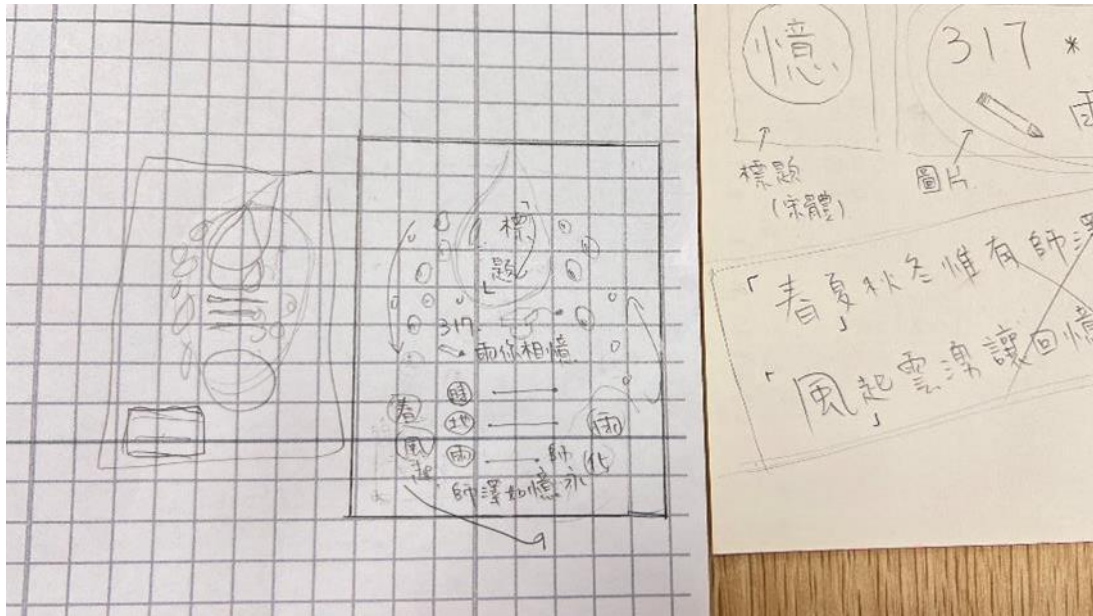 「標
題」
317
雨你相憶
時
地
雨
師
春
風
起
化
師澤如憶永
憶
317 *
標題
(宋體)
圖片
「春夏」秋冬惟有師澤
「風起」雲湧讓回憶